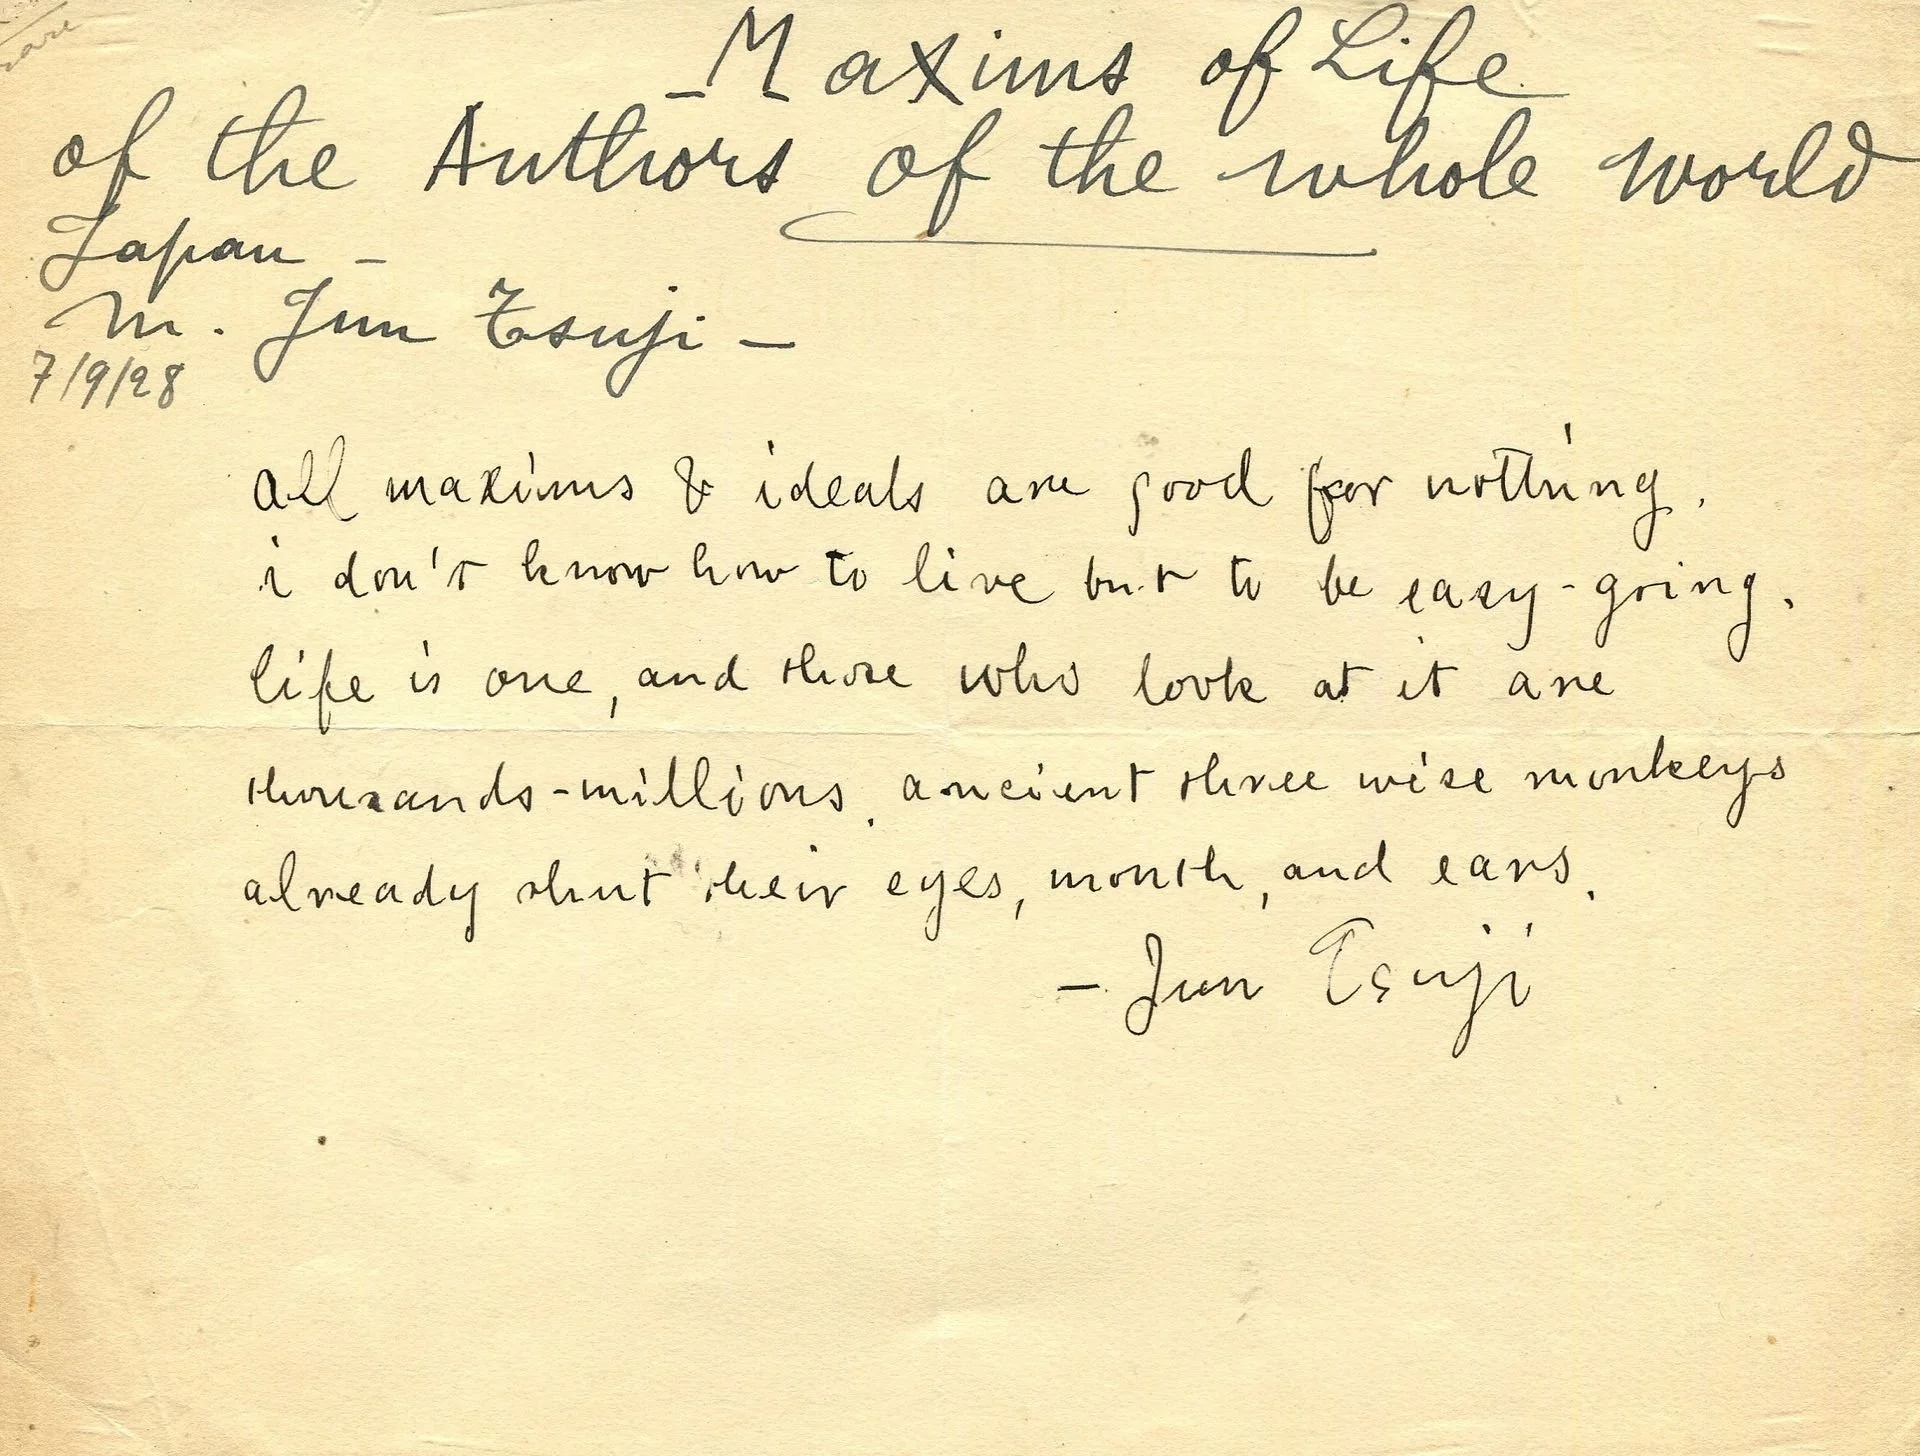 - Maxims of Life
of the Authors of the whole world
Japan -
M. Jun Tsuji -
7/9/28
all maxims & ideals are good for nothing.
i don't know how to live but to be easy-going.
life is one, and those who look at it are
thousands-millions. ancient three wise monkeys
already shut their eyes, mouth, and ears.
- Jun Tsuji